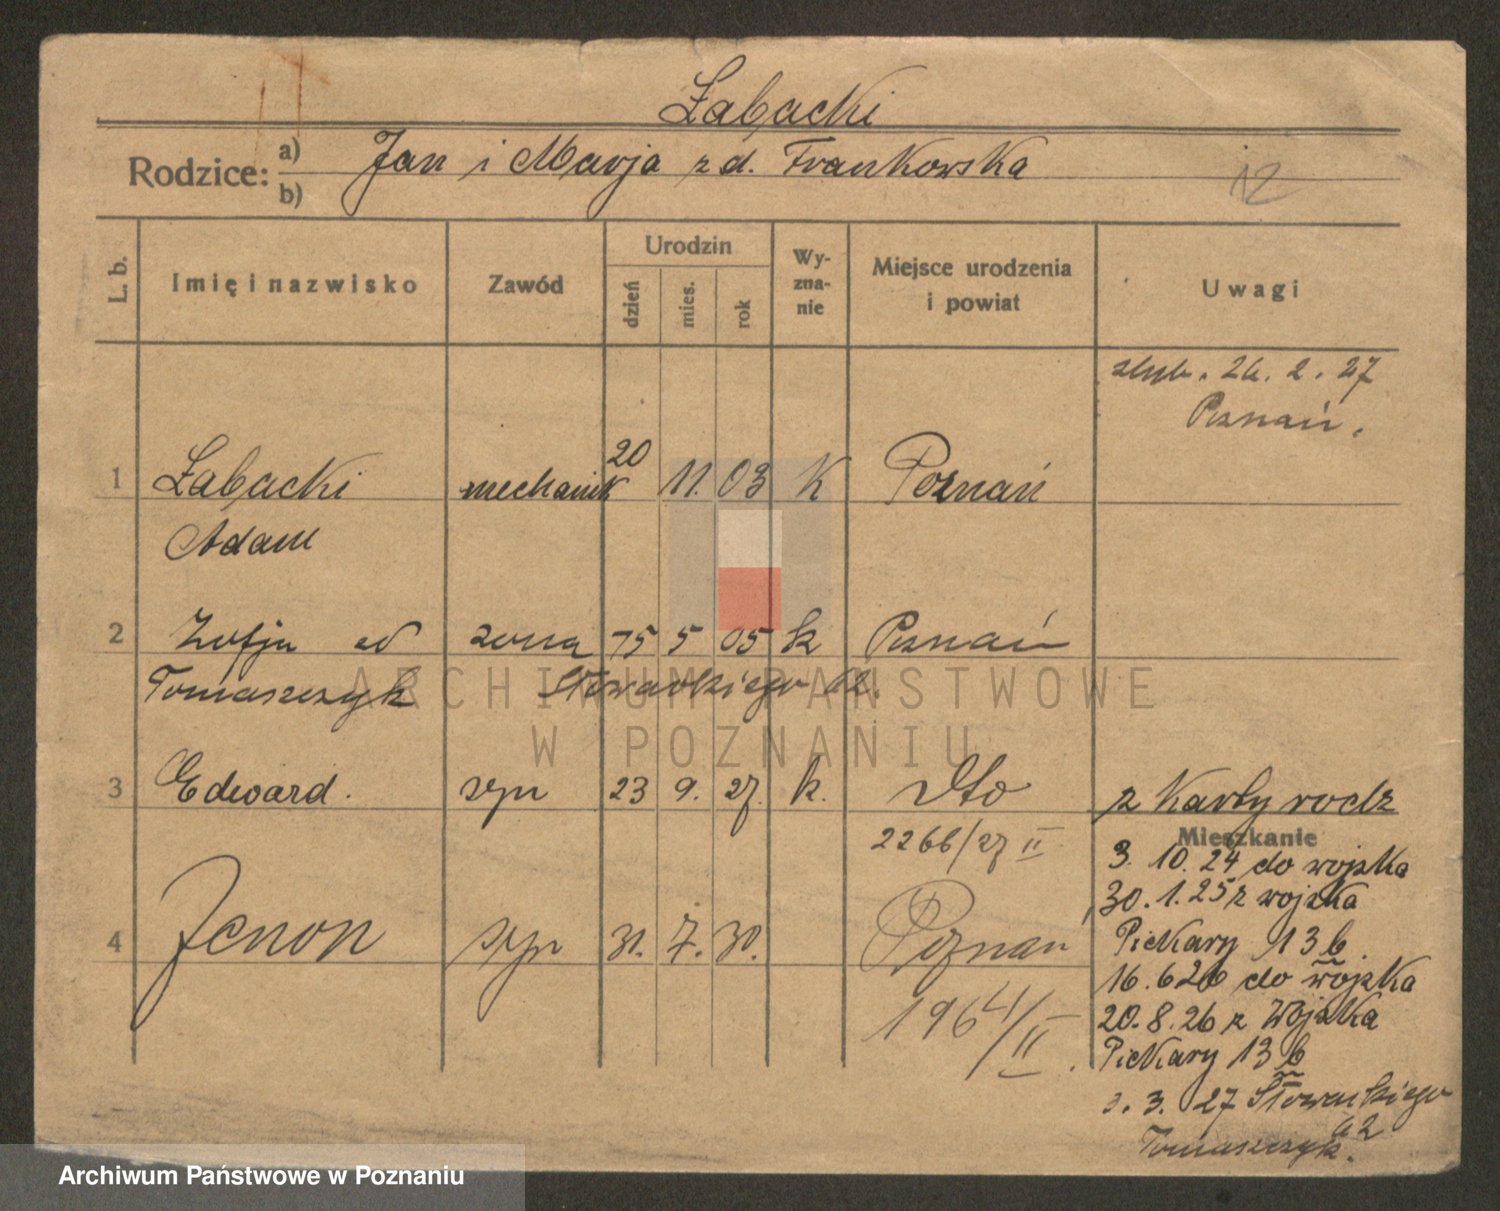 Łabęcki
Rodzice: a) Jan i Marja z d. Frankowska
b)
12
L. b.
Imię i nazwisko
Zawód
Urodzin
dzień
mies.
rok
Wy-
zna-
nie
Miejsce urodzenia
i powiat
Uwagi
ślub. 26. 2. 27
Poznań.
1 Łabęcki mechanik 20 11. 03 K Poznań
Adam
2 Zofja żona 15 5 05 k Poznań
Tomaszczyk Słowackiego 62.
3 Edward. syn 23 9. 27. k. dto z Karty rodz
Mieszkanie
2266/27 II
3. 10. 24 do wojska
30. 1. 25 z wojska
4 Zenon syn 31. 7. 30. Poznań
Piekary 13 b.
16. 6 26 do wojska
1964/II
20. 8. 26 z Wojska
Piekary 13 b
3. 3. 27 Słowackiego
62
Tomaszczyk.
ARCHIWUM PAŃSTWOWE
W POZNANIU
Archiwum Państwowe w Poznaniu